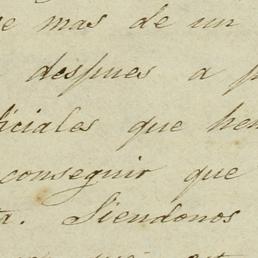 e mas de un
despues a p
iciales que hem
conseguir que
ta. Siendonos